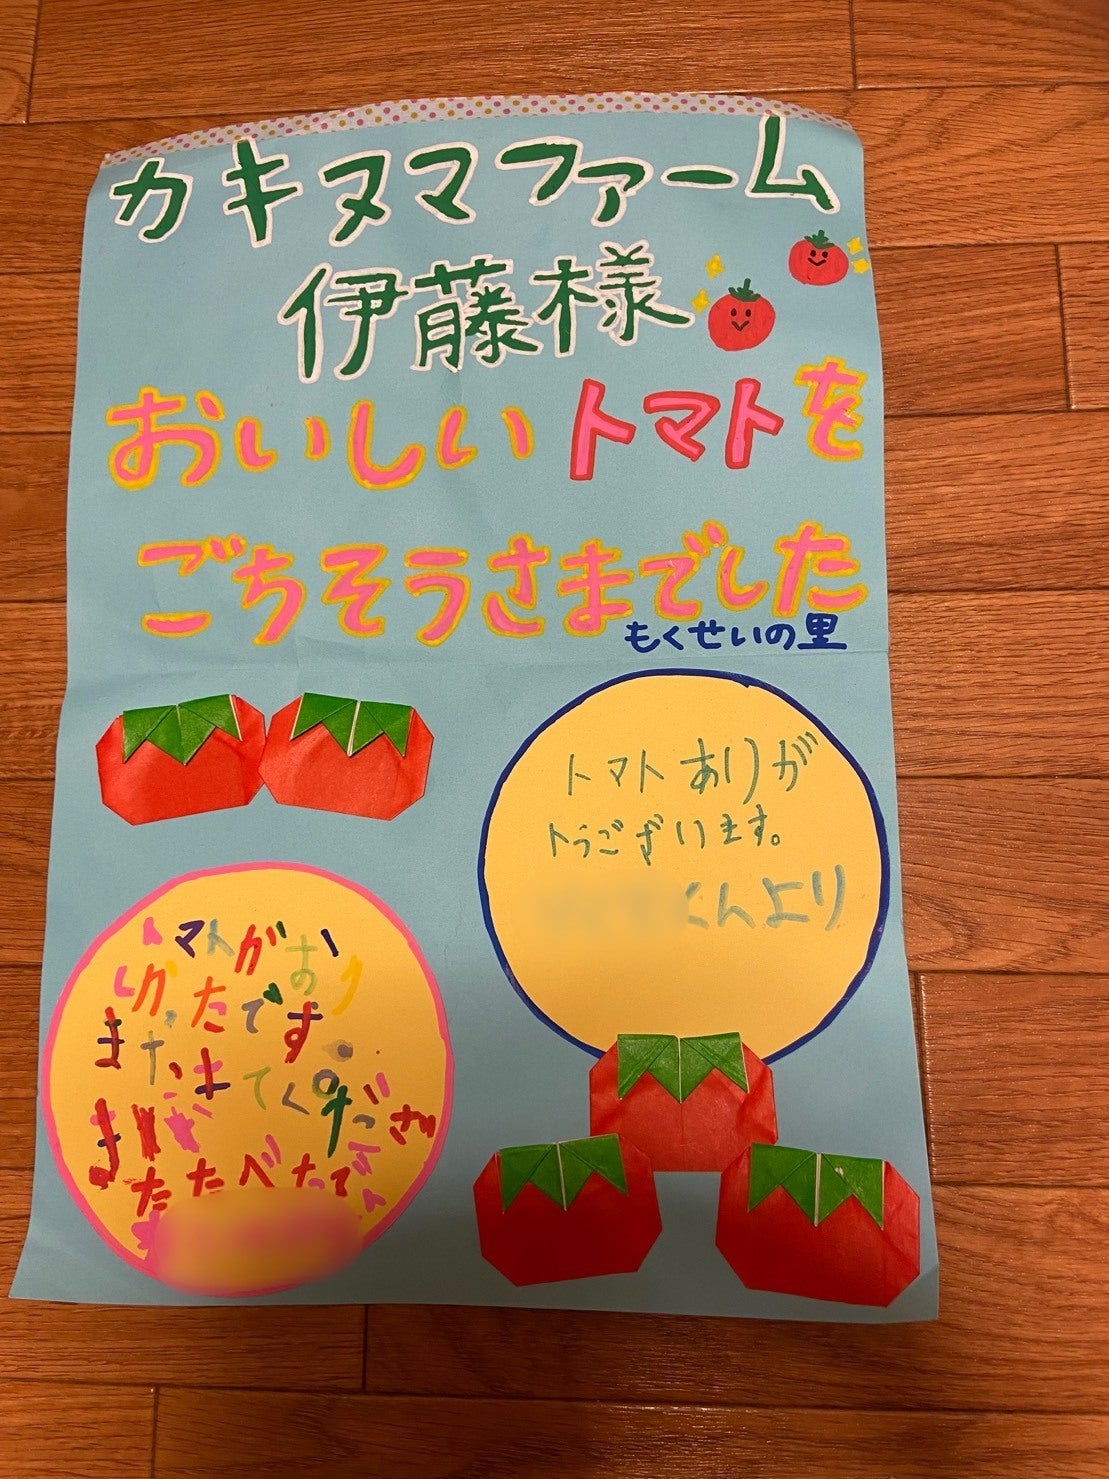 カキヌマファーム
伊藤様
おいしいトマトを
ごちそうさまでした
もくせいの里
トマトありが
トうございます。
くんより
トマトがおい
しかったです。
またきてくださ